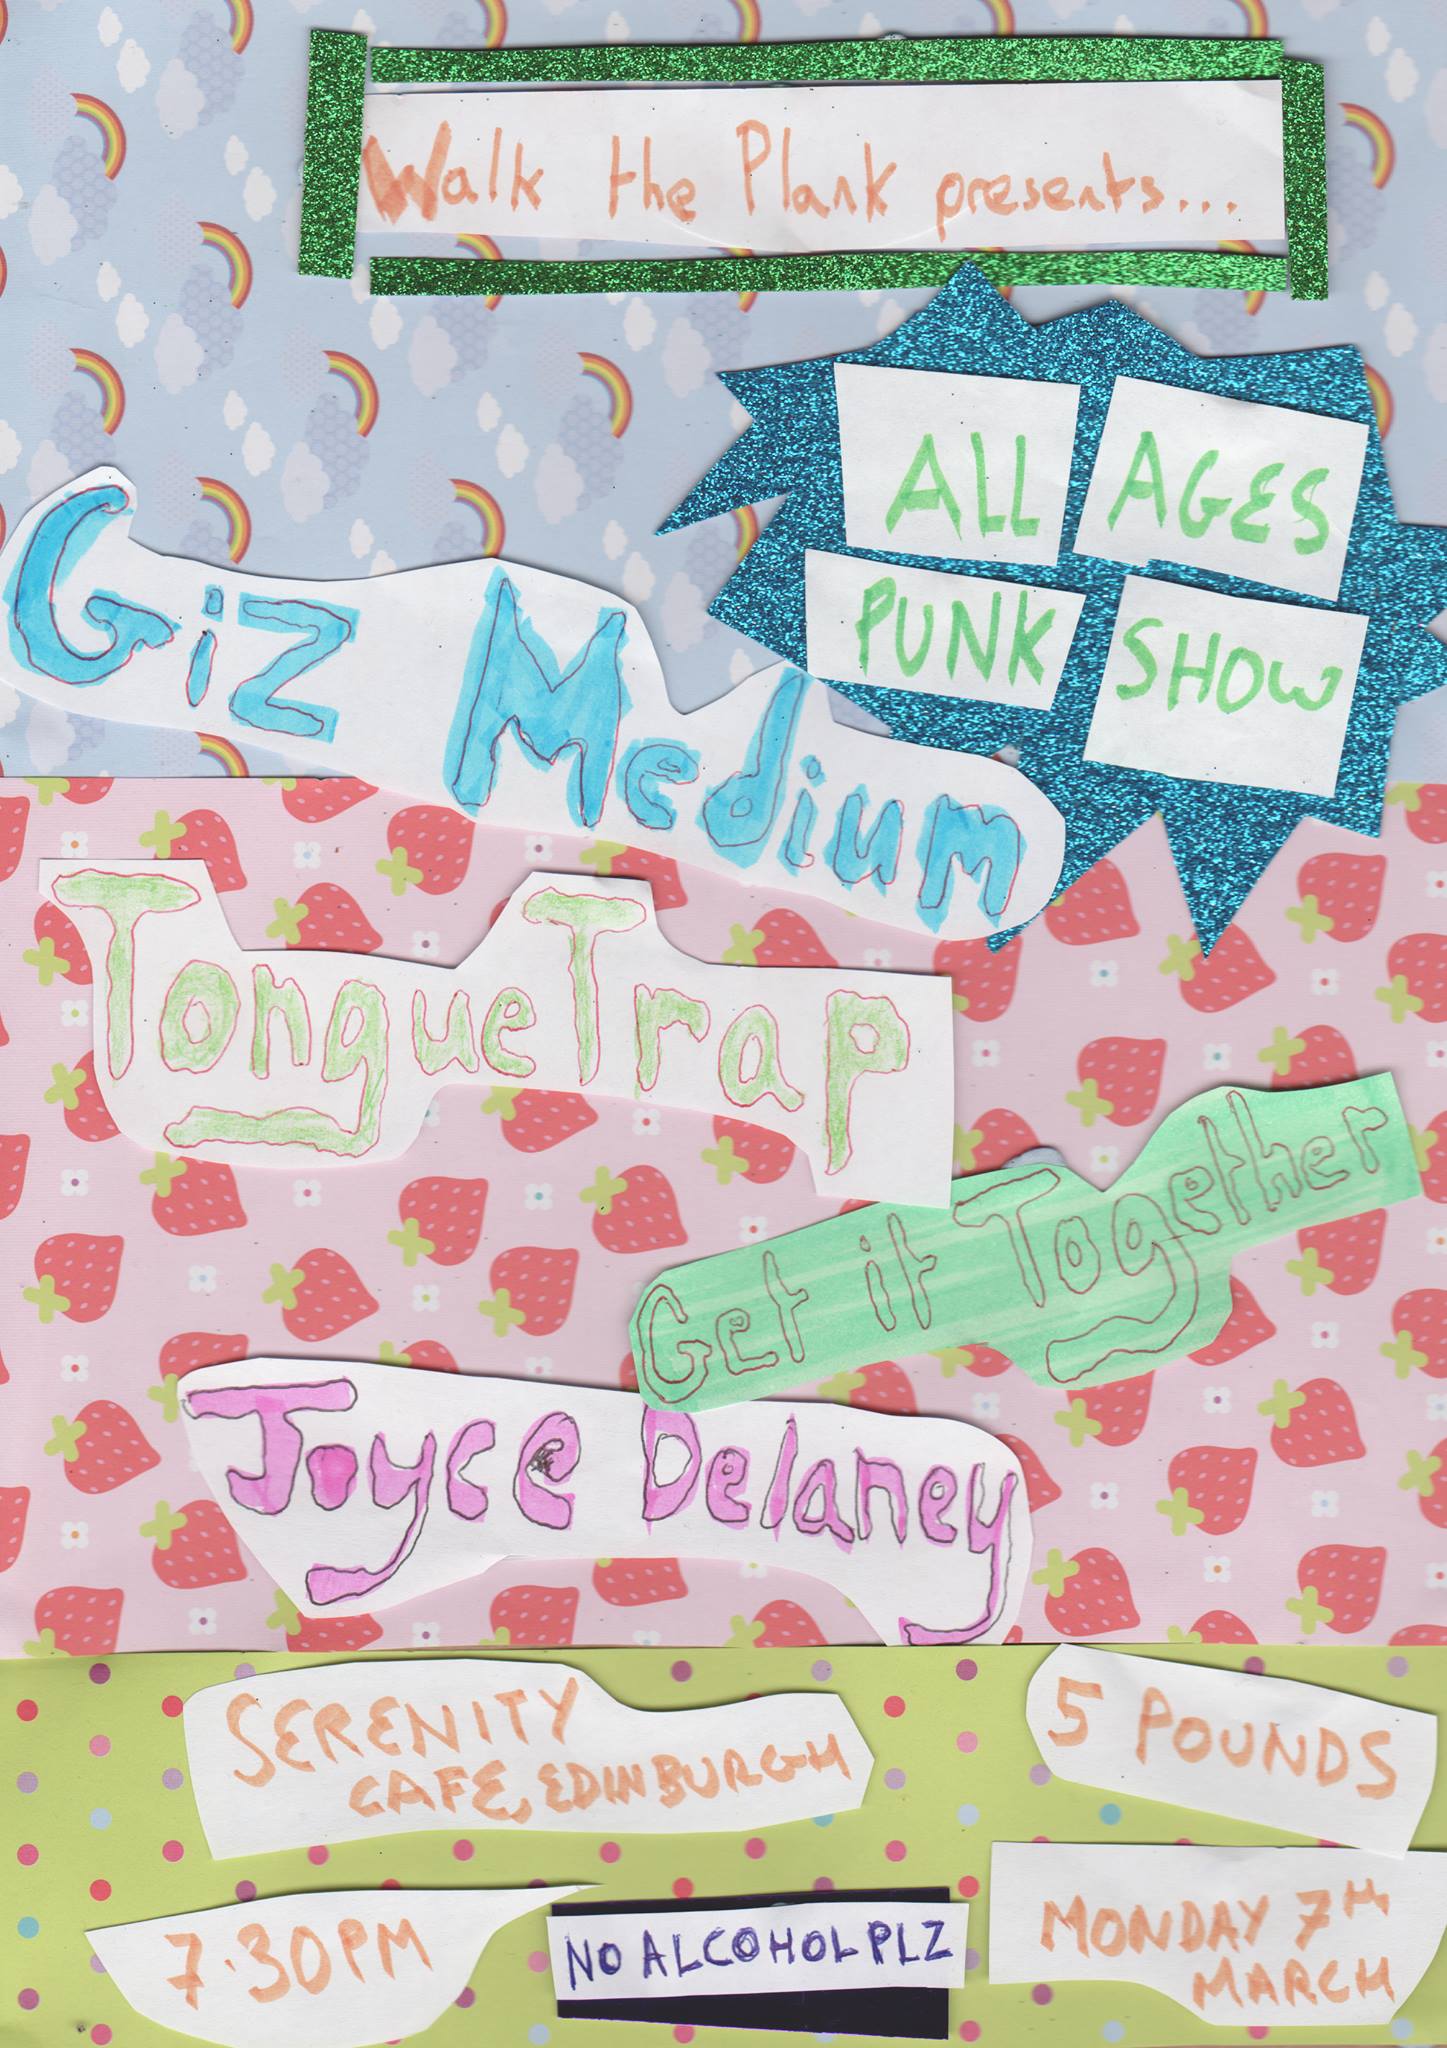 Walk the Plank presents...
ALL AGES
PUNK SHOW
Giz Medium
TongueTrap
Get it Together
Joyce Delaney
SERENITY
CAFE, EDINBURGH
5 POUNDS
7.30PM
NO ALCOHOL PLZ
MONDAY 7TH
MARCH